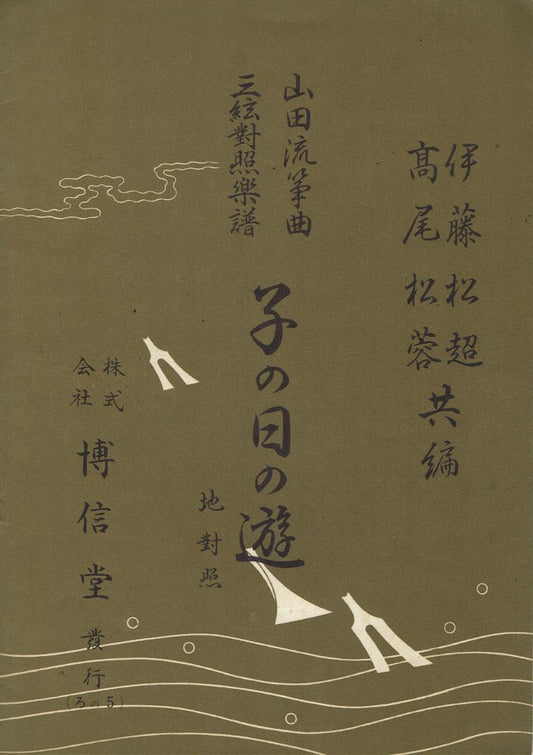 伊藤松超
高尾松蓉
共編
山田流箏曲
三絃對照樂譜
子の日の遊
地對照
株式
会社
博信堂
發行
(ろの5)